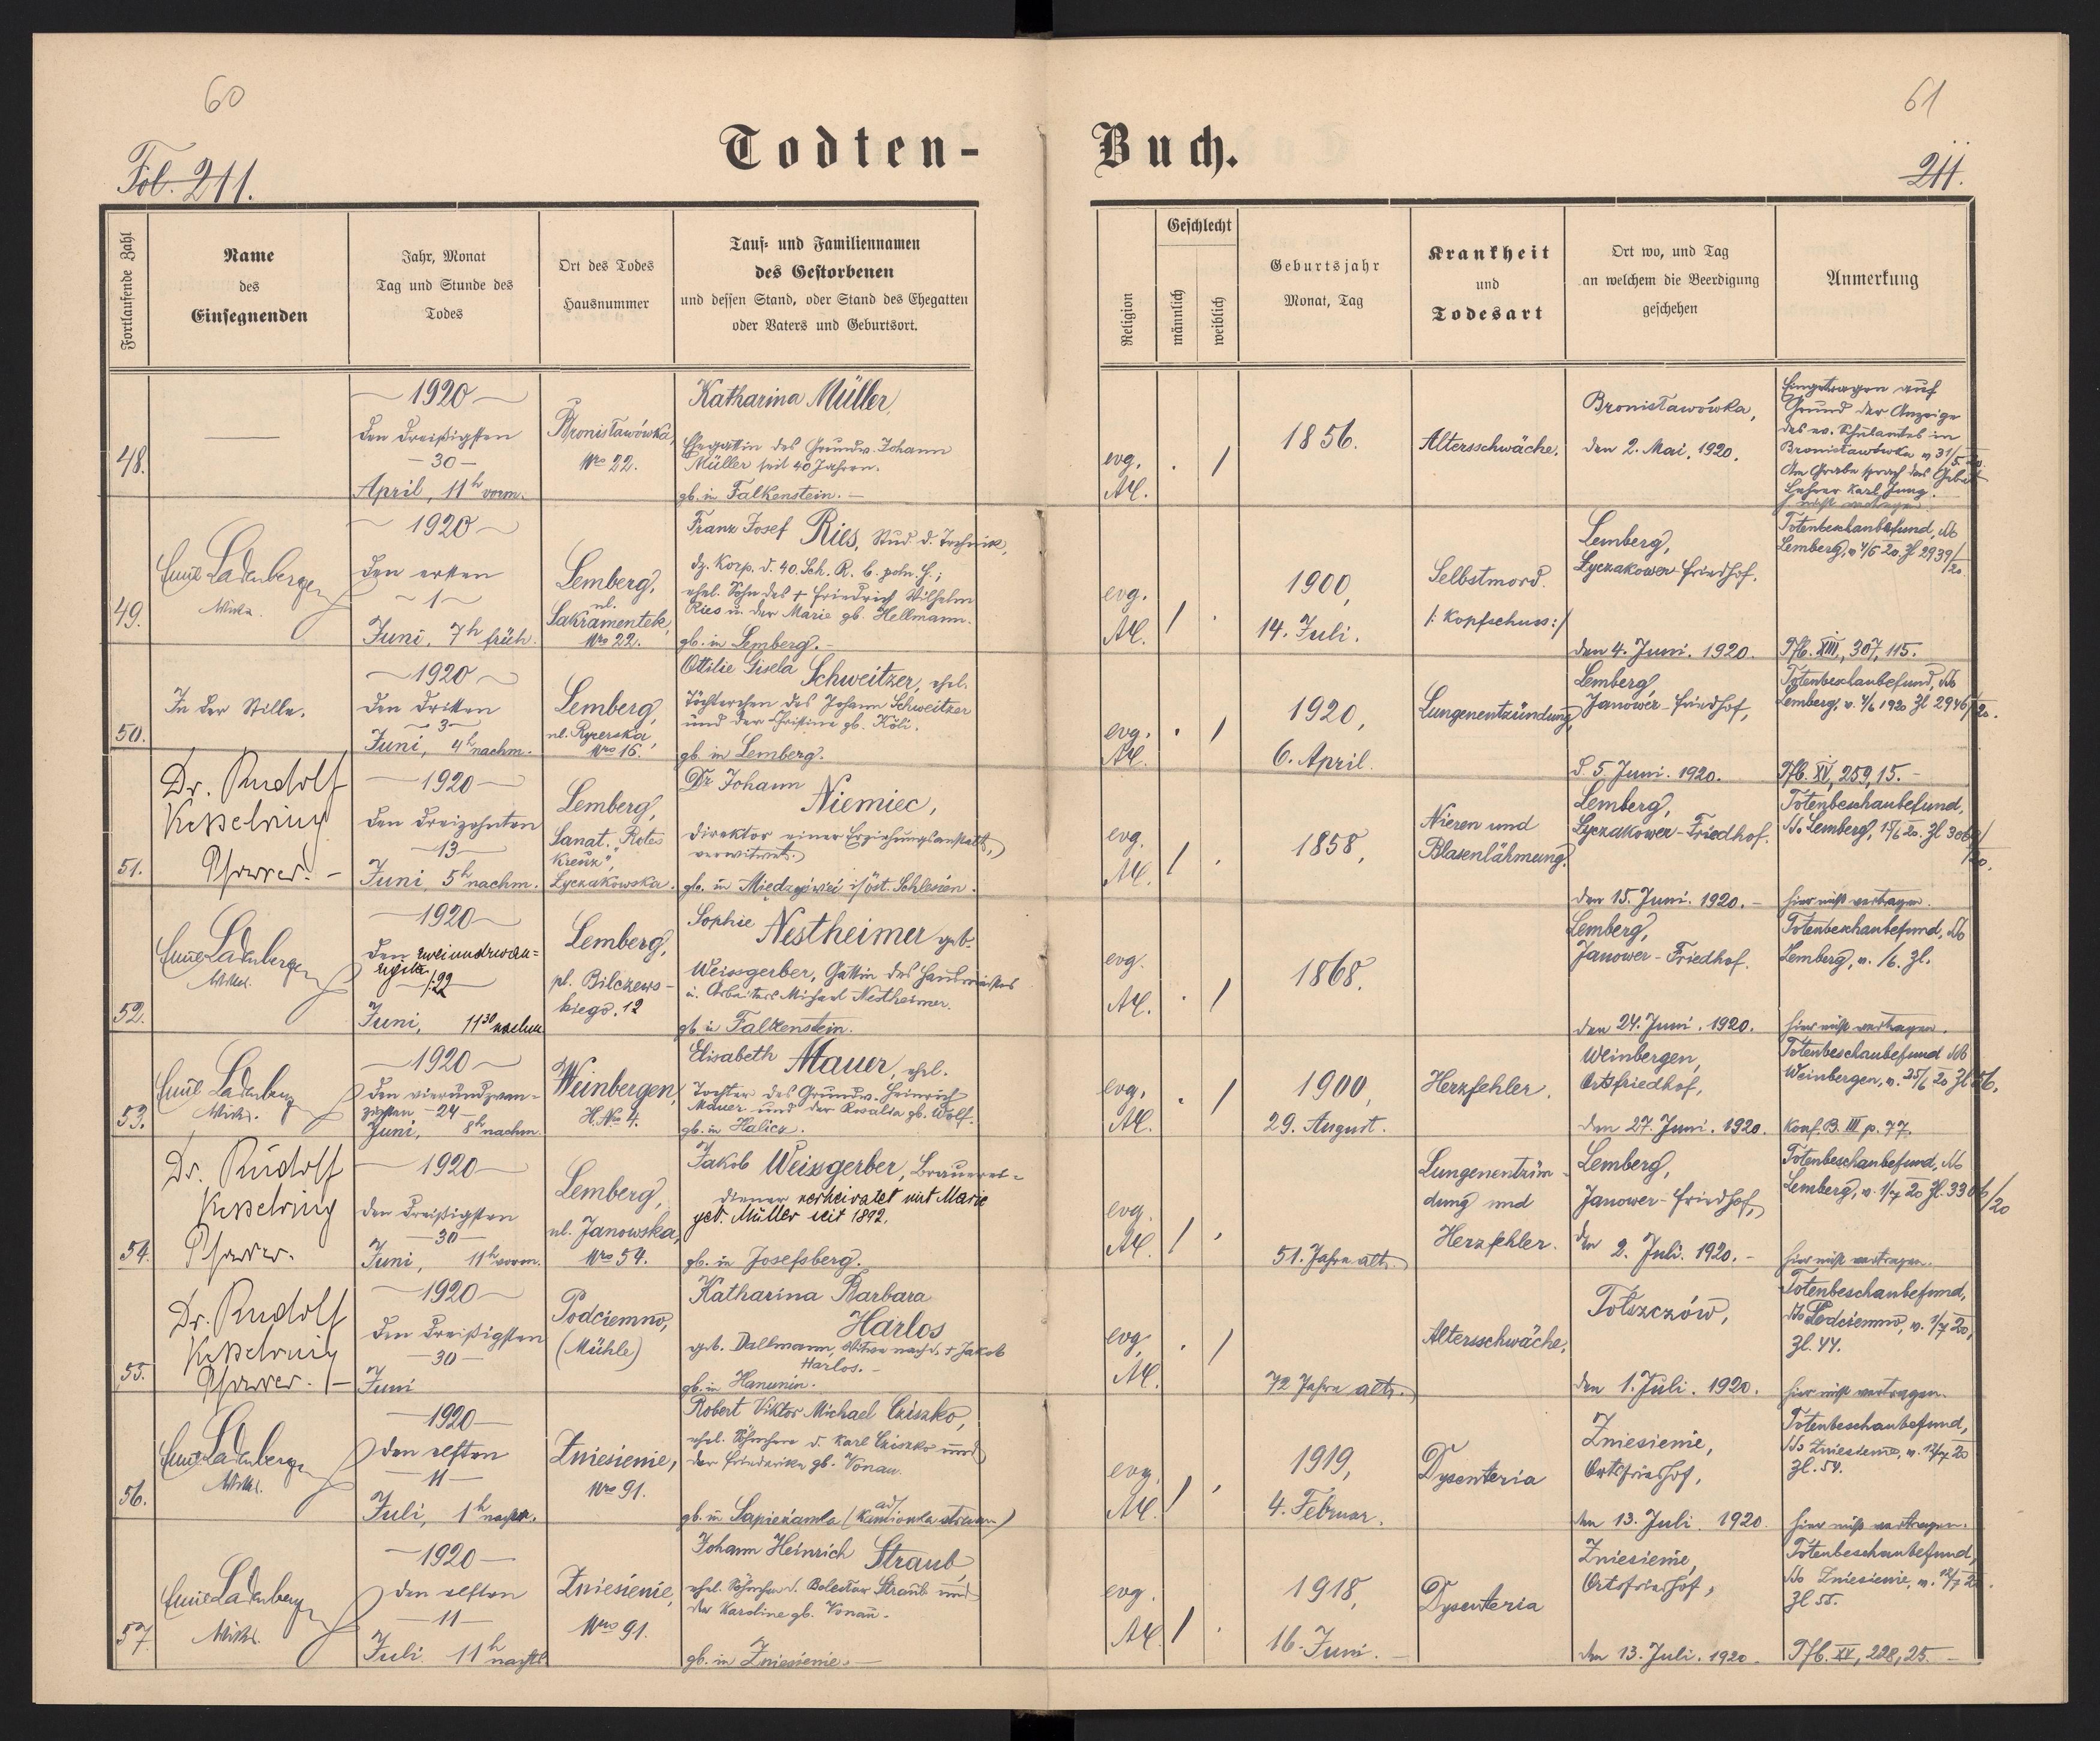 60
61
Todten-
Buch.
Fol. 211.
211.
Fortlaufende Zahl
Name
des
Einsegnenden
Jahr, Monat
Tag und Stunde des
Todes
Ort des Todes
Hausnummer
Tauf- und Familiennamen
des Gestorbenen
und dessen Stand, oder Stand des Ehegatten
oder Vaters und Geburtsort.
Religion
Geschlecht
männlich
weiblich
Geburtsjahr
Monat, Tag
Krankheit
und
Todesart
Ort wo, und Tag
an welchem die Beerdigung
geschehen
Anmerkung
48.
1920
den dreißigsten
-30-
April, 11h vorm.
Bronisławówka,
Nro 22.
Katharina Müller,
Ehegattin des Grundw. Johann
Müller seit 40 Jahren.
gb. in Falkenstein. -
evg.
AC.
1856.
Altersschwäche.
Bronisławówka,
den 2. Mai. 1920.
Eingetragen auf
Grund der Anzeige
des ev. Schulamtes in
Bronisławówka v. 31/5
Am Grabe sprach das Gebet
Lehrer Karl Jung.
49.
Emil Ladenberger
Vikar.
1920
den ersten
-1-
Juni, 7h früh.
Lemberg,
ul.
Sakramentek,
Nro 22.
Franz Josef Ries, Stud. d. Technik,
dz. Korp. d. 40. Sch. R. b. poln. H.;
ehel. Sohn des + Friedrich Wilhelm
Ries u. der Marie gb. Hellmann.
gb. in Lemberg. -
evg.
AC.
1900,
14. Juli.
Selbstmord.
/: Kopfschuss:/
Lemberg,
Lyczakower Friedhof.
den 4. Juni. 1920.
Totenbeschaubefund, do
Lemberg, v. 4/6 20. Zl 2939/20
Tfb. XIII, 307, 115.
50.
In der Stille.
1920
den dritten
-3-
Juni, 4h nachm.
Lemberg,
ul. Rycerska,
Nro 16.
Ottilie Gisela Schweitzer, ehel.
Töchterchen des Johann Schweitzer
und der Christine gb. Köli.
gb. in Lemberg.
evg.
AC.
1920,
6. April.
Lungenentzündung,
Lemberg,
Janower-Friedhof,
d. 5. Juni. 1920.
Totenbeschaubefund, do
Lemberg, v. 4/6 1920 Zl 2946/20.
Tfb. XV, 259, 15. -
51.
Dr. Rudolf
Kesselring
Pfarrer. -
1920
den dreizehnten
-13-
Juni, 5h nachm.
Lemberg,
Sanat. "Rotes
Kreuz",
Lyczakowska.
Dr Johann
Niemiec,
Direktor einer Erziehungsanstalt,
verwitwet.
evg.
AC.
1858,
Nieren und
Blasenlähmung.
Lemberg,
Lyczakower-Friedhof.
den 15. Juni. 1920. -
Totenbeschaubefund,
do. Lemberg, 15/6 20.
hier nicht vertragen.
52.
Emil Ladenberger
Vikar.
1920
den zweiundzwan-
zigsten
/:22
Juni, 11 30 nachm
Lemberg,
pl. Bilczews-
kiego. 12
Sophie Nestheimer geb.
Weissgerber, Gattin des
u. Arbeiters Michael Nestheimer.
gb. in Falkenstein.
evg.
AC.
1868.
Lemberg,
Janower-Friedhof.
den 24. Juni. 1920.
Totenbeschaubefund, do
Lemberg, v. /6. Zl.
hier nicht vertragen.
53.
Emil Ladenberger
Vikar.
1920
den vierundzwan-
zigsten -24-
Juni, 8h nachm.
Weinbergen,
H.No 4.
Elisabeth Mauer, ehel.
Tochter des Grundw. Heinrich
Mauer und der Rosalia gb. Wolf.
gb. in Halicz.
evg.
AC.
1900,
29. August.
Herzfehler.
Weinbergen,
Ortsfriedhof,
den 27. Juni. 1920.
Totenbeschaubefund do
Weinbergen, v. 25/6 20 Zl 56.
Konf. B. III p. 77.
54.
Dr. Rudolf
Kesselring
Pfarrer.
1920
den dreißigsten
-30-
Juni, 11h vorm.
Lemberg,
ul. Janowska,
Nro 54.
Jakob Weissgerber, Brauerei-
diener verheiratet mit Marie
geb. Müller seit 1892.
gb. in Josefsberg.
evg.
AC.
51. Jahre alt.
Lungenentzün-
dung und
Herzfehler.
Lemberg,
Janower-Friedhof,
den 2. Juli. 1920. -
Totenbeschaubefund, do
Lemberg, v. 1/7 20 Zl. 3306/20
hier nicht vertragen.
55.
Dr. Rudolf
Kesselring
Pfarrer. -
1920
den dreißigsten
-30-
Juni
Podciemno,
(Mühle)
Katharina Barbara
Harlos
geb. Dallmann, Witwe nach d. + Jakob
Harlos. -
gb. in Hanunin.
evg.
AC.
72 Jahre alt.
Altersschwäche.
Tołszczów,
den 1. Juli. 1920.
Totenbeschaubefund,
do Podciemno, v. 1/7 20,
Zl. 44.
hier nicht vertragen.
56.
Emil Ladenberger
Vikar.
1920
den elften
-11-
Juli, 1h nachm.
Zniesienie,
Nro 91.
Robert Viktor Michael Cziszko,
ehel. Söhnchen d. Karl Cziszko und
der Friederike gb. Vonau.
evg.
AC.
1919,
4. Februar.
Dysenteria
Zniesienie,
Ortsfriedhof,
den 13. Juli. 1920.
Totenbeschaubefund,
do Zniesienie, v. 12/7 20
Zl. 54.
hier nicht vertragen.
57.
Emil Ladenberger
Vikar.
1920
den elften
-11-
Juli 11h nachts
Zniesienie,
Nro 91.
Johann Heinrich Straub,
ehel. Söhnchen d. Boleslav Straub und
der Karoline gb. Vonau.
gb. in Zniesienie. -
evg.
AC.
1918,
16. Juni. -
Dysenteria
Zniesienie,
Ortsfriedhof,
den 13. Juli. 1920.
Totenbeschaubefund,
do Zniesienie, v. 12/7 20.
Zl 55.
Tfb. XV, 228, 25. -